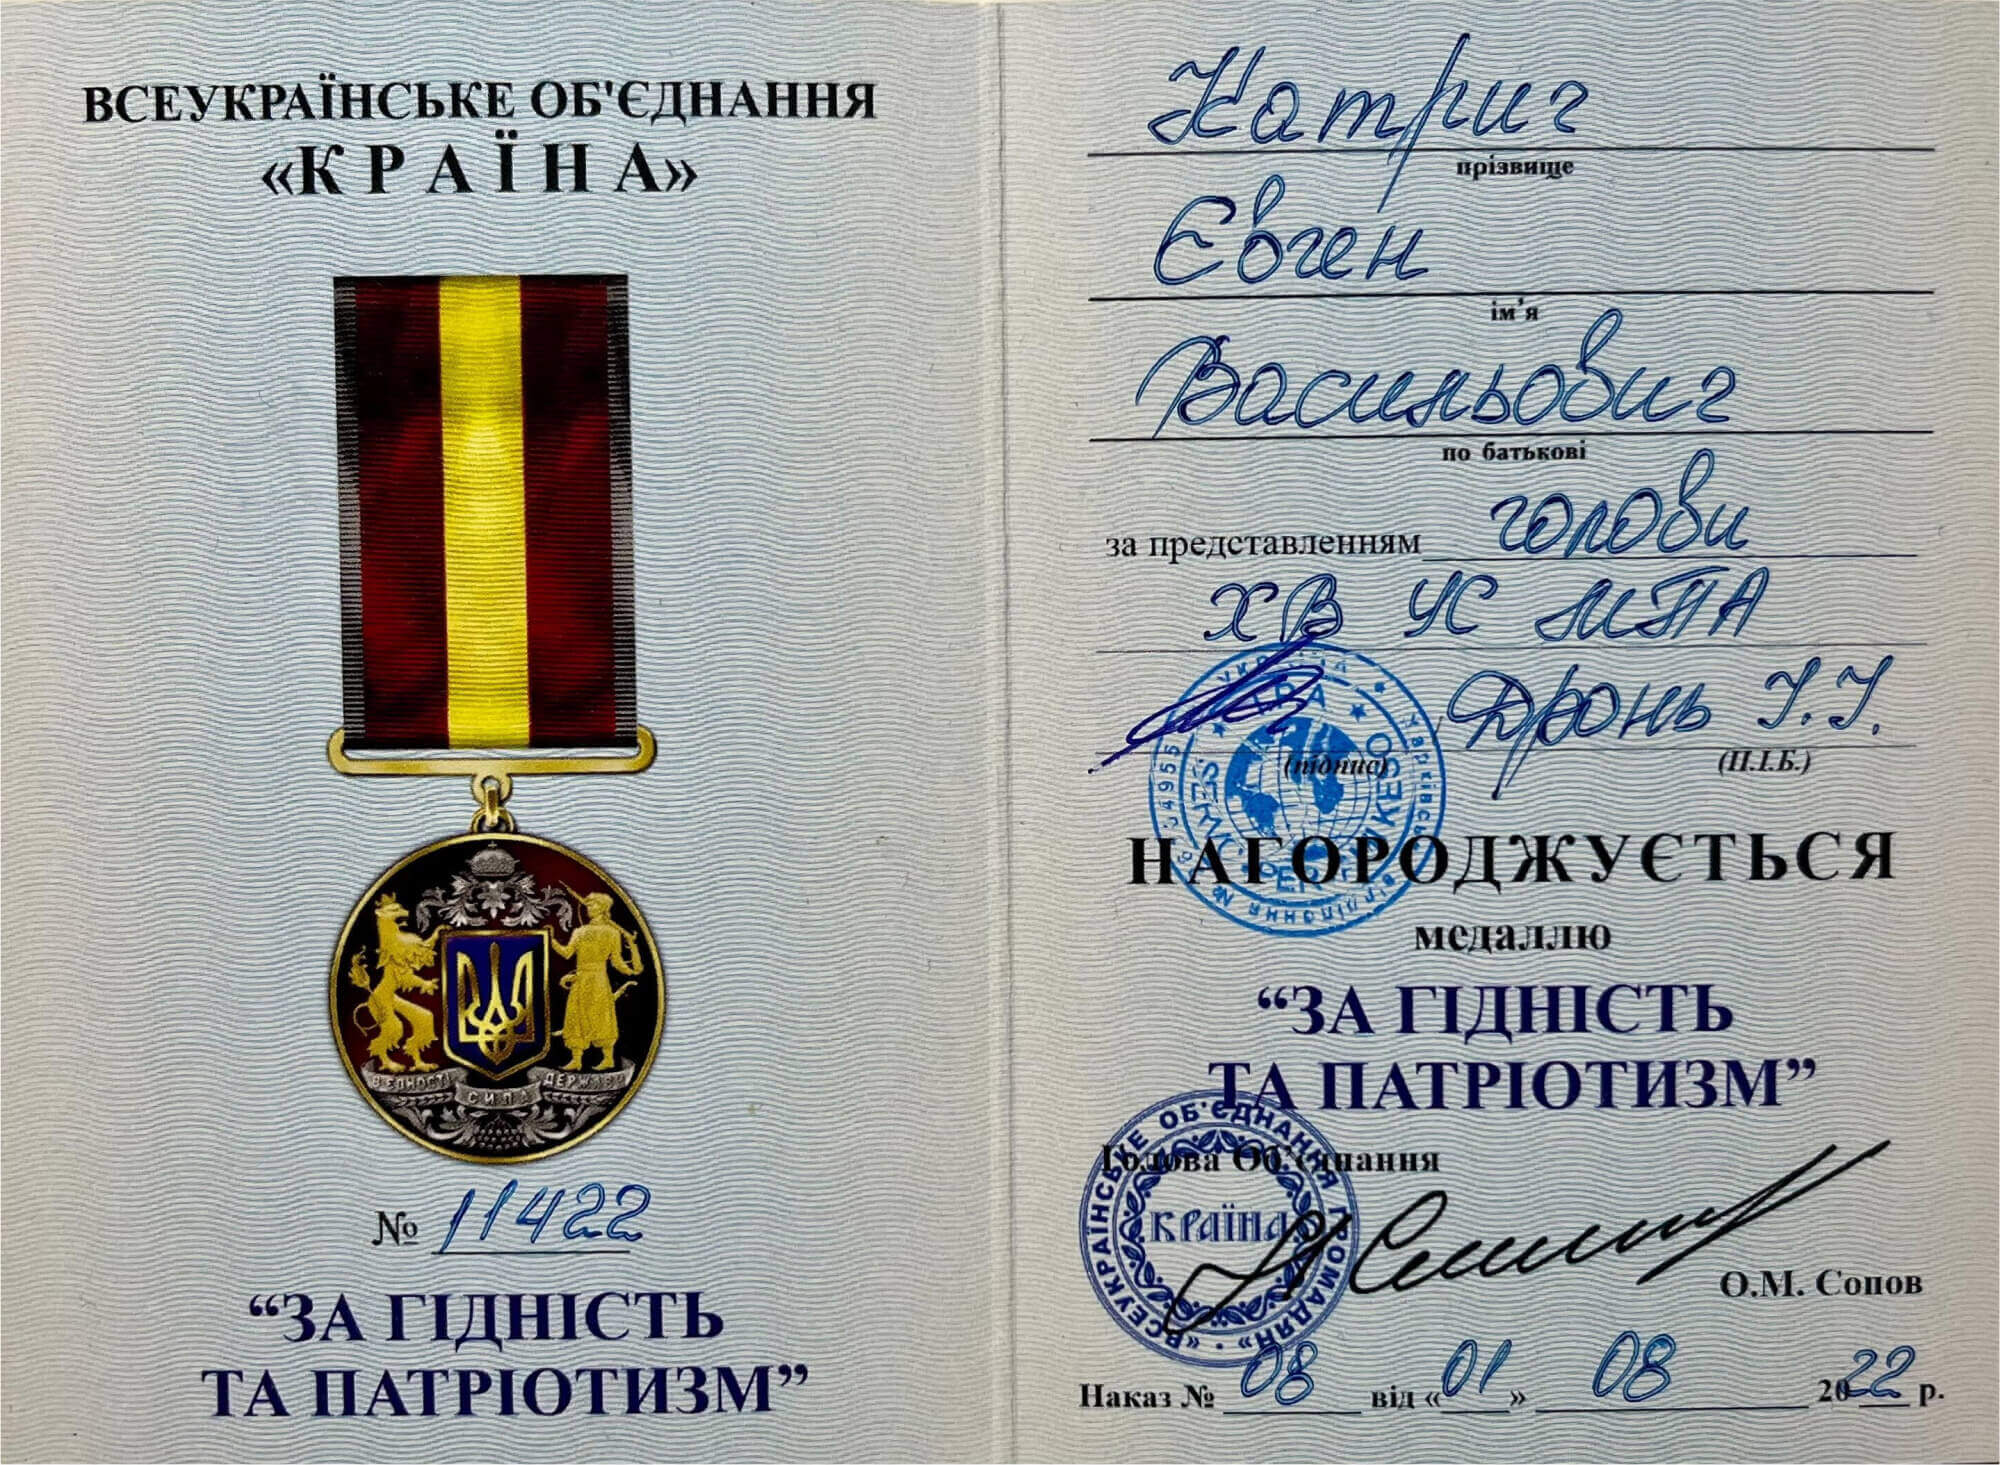 ВСЕУКРАЇНСЬКЕ ОБ'ЄДНАННЯ
«КРАЇНА»
В ЄДНОСТІ
СИЛА
ДЕРЖАВИ
№ 11422
“ЗА ГІДНІСТЬ
ТА ПАТРІОТИЗМ”
Катрич
прізвище
Євген
ім'я
Васильович
по батькові
за представленням голови
ХВ УС МПА
Дронь І.І.
(підпис)
(П.І.Б.)
НАГОРОДЖУЄТЬСЯ
медаллю
“ЗА ГІДНІСТЬ
ТА ПАТРІОТИЗМ”
Голова Об'єднання
ВСЕУКРАЇНСЬКЕ ОБ'ЄДНАННЯ ГРОМАДЯН
КРАЇНА
О.М. Сопов
Наказ № 08 від «01» 08 2022 р.